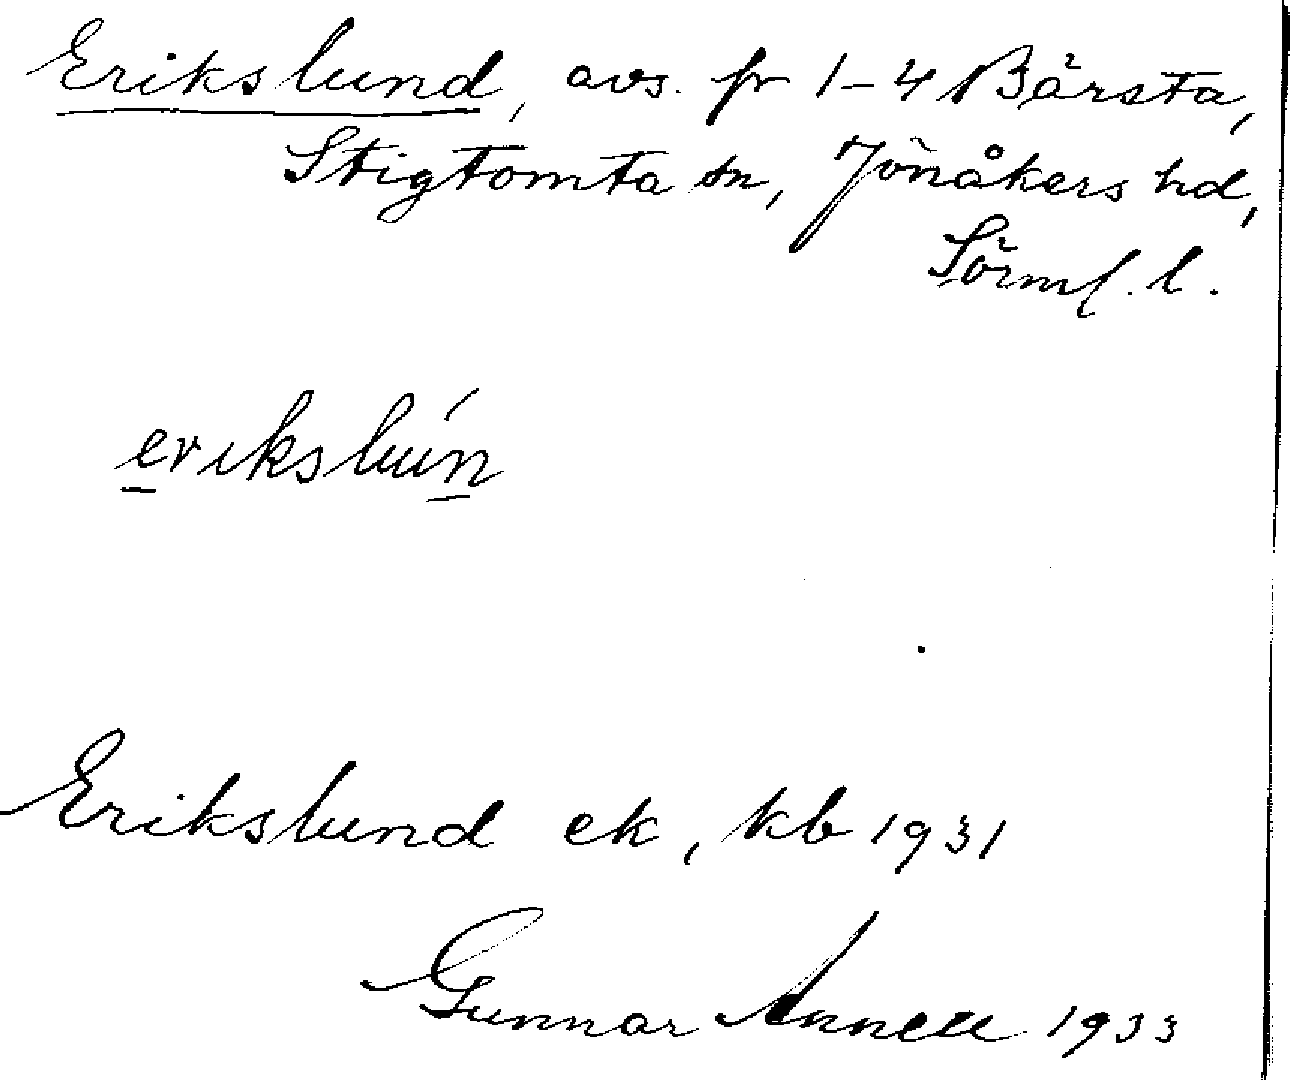 Erikslund, avs. fr 1-4 Bärsta,
Stigtomta sn, Jönåkers hd,
Sörml. l.
erikslun´
Erikslund ek, kb 1931
Gunnar Annell 1933